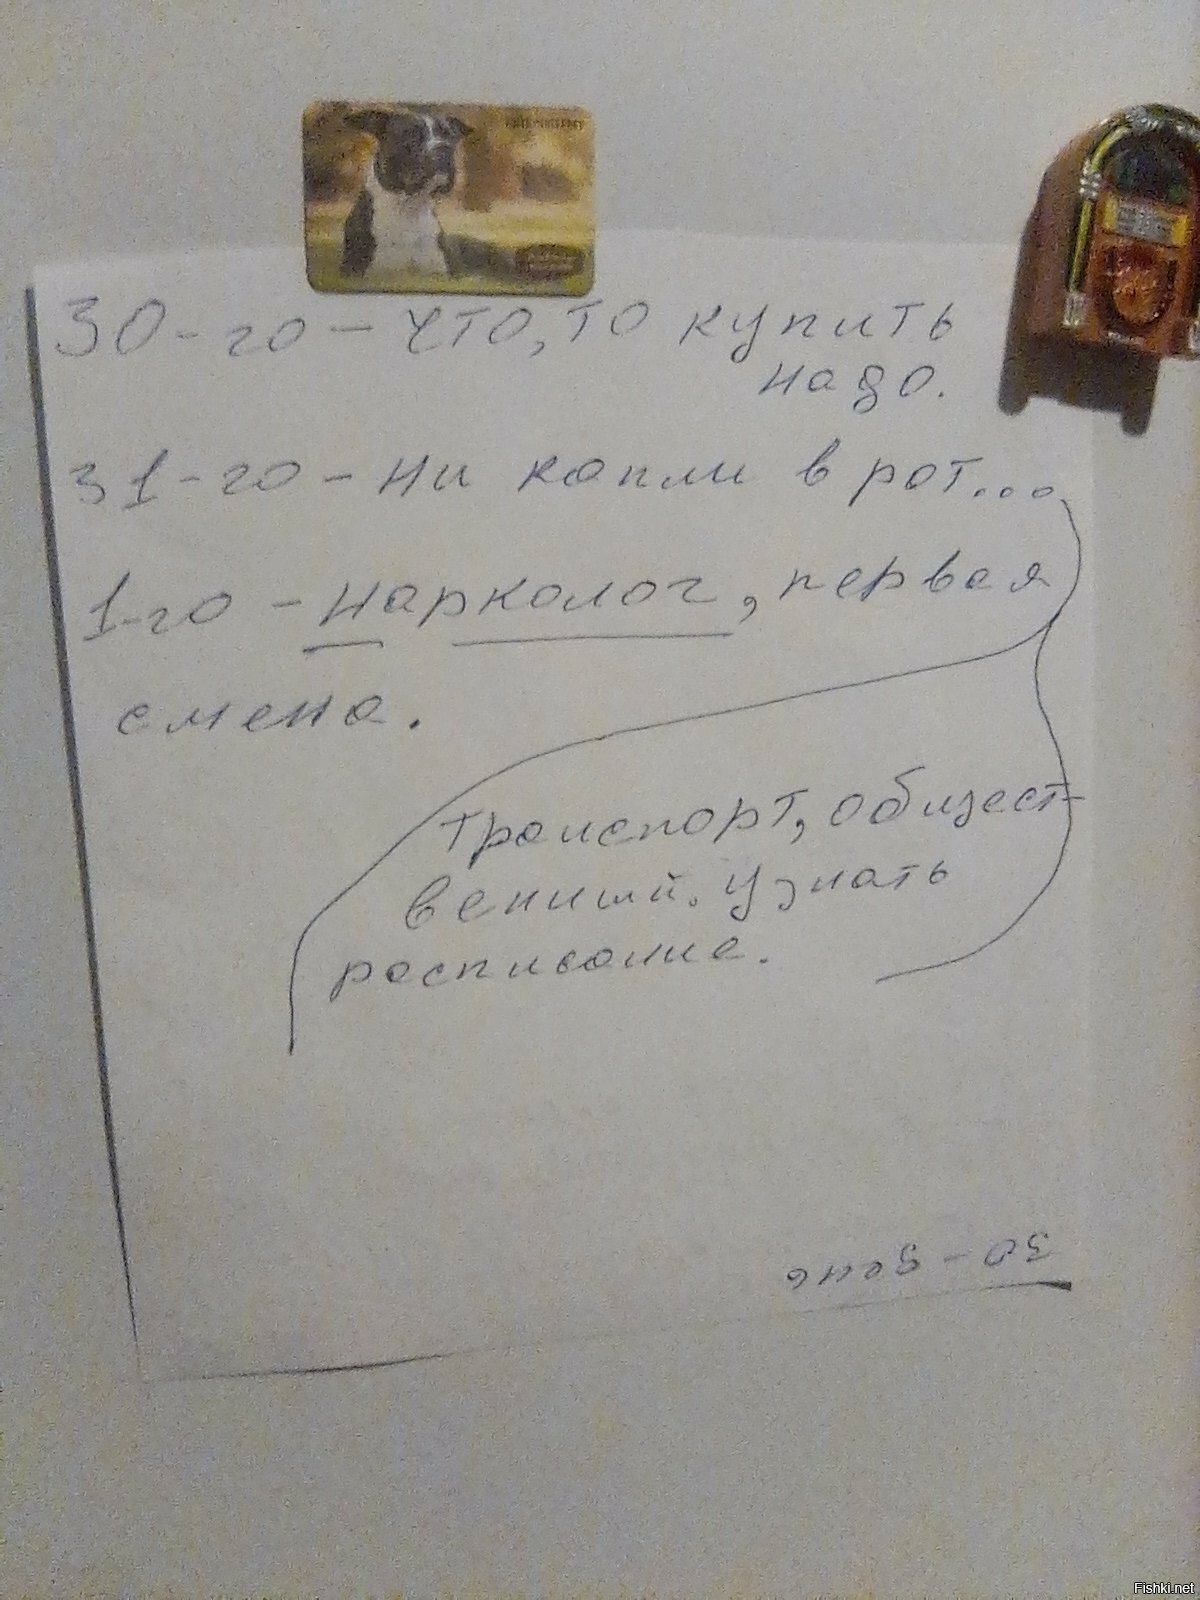 30-го – что, то купить
надо.
31-го – ни капли в рот...
1-го – нарколог, первая
смена.
транспорт, общест-
венный. Узнать
расписание.
30 – день
Fishki.net